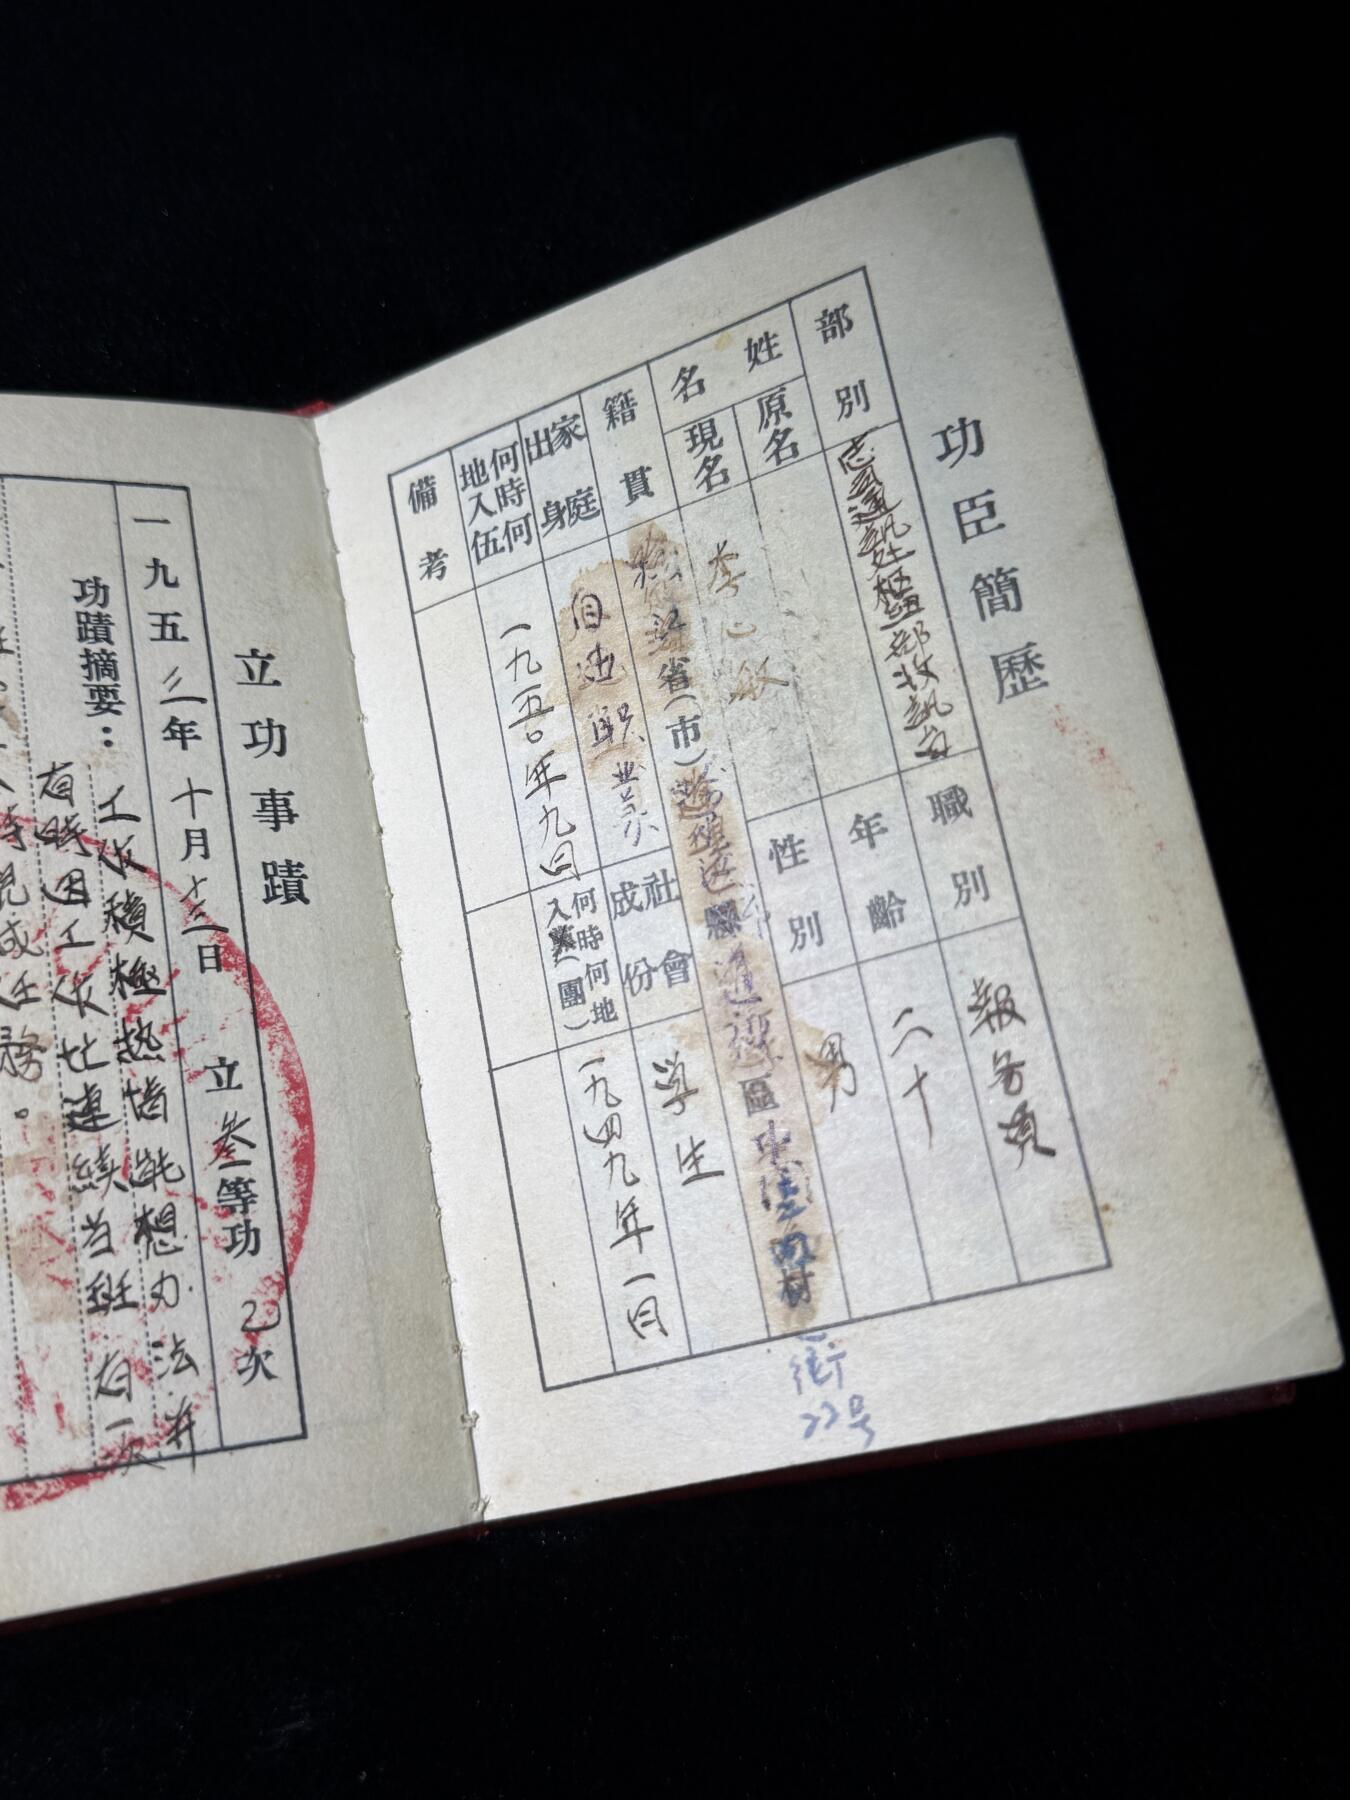 功臣簡歷
部別
志司通訊处枢紐部收訊台
職別
報务員
姓名
原名
現名
李心敏
年齡
二十
性別
男
籍貫
江省(市)
縣
區
村
街
22号
家庭出身
自由职业
社會成份
学生
何時何地入伍
一九五〇年九月
何時何地入黨(團)
一九四九年一月
備考
立功事蹟
一九五三年十月十三日 立叁等功乙次
功蹟摘要：
工作積極热情能想办法并
有時因工作忙連續当班.有一次
務。